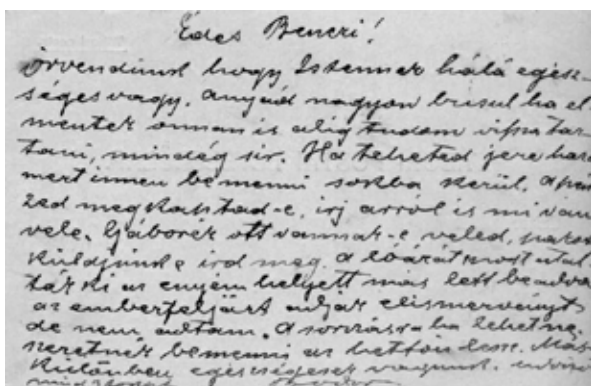 Édes Benczi!
örvendünk hogy Istennek hálá egész-
séges vagy. anyád nagyon busul ha el
mentek onnan is alig tudom vissza tar-
tani, mindég sir. Ha teheted jere haza
mert innen bemenni sokba kerül, a pén
zed megkaptad-e, irj arról is mi van
vele. Gáborék ott vannak-e veled,
küldjünk e ird meg. a lóárát most utal-
ták ki az enyém helyett más lett beadva
az ember feljárt adjak elismervényt
de nem adtam. A sorozásra ha lehetne,
szeretnék bemenni az hetfőn lesz. Más
különben egészségesek vagyunk.